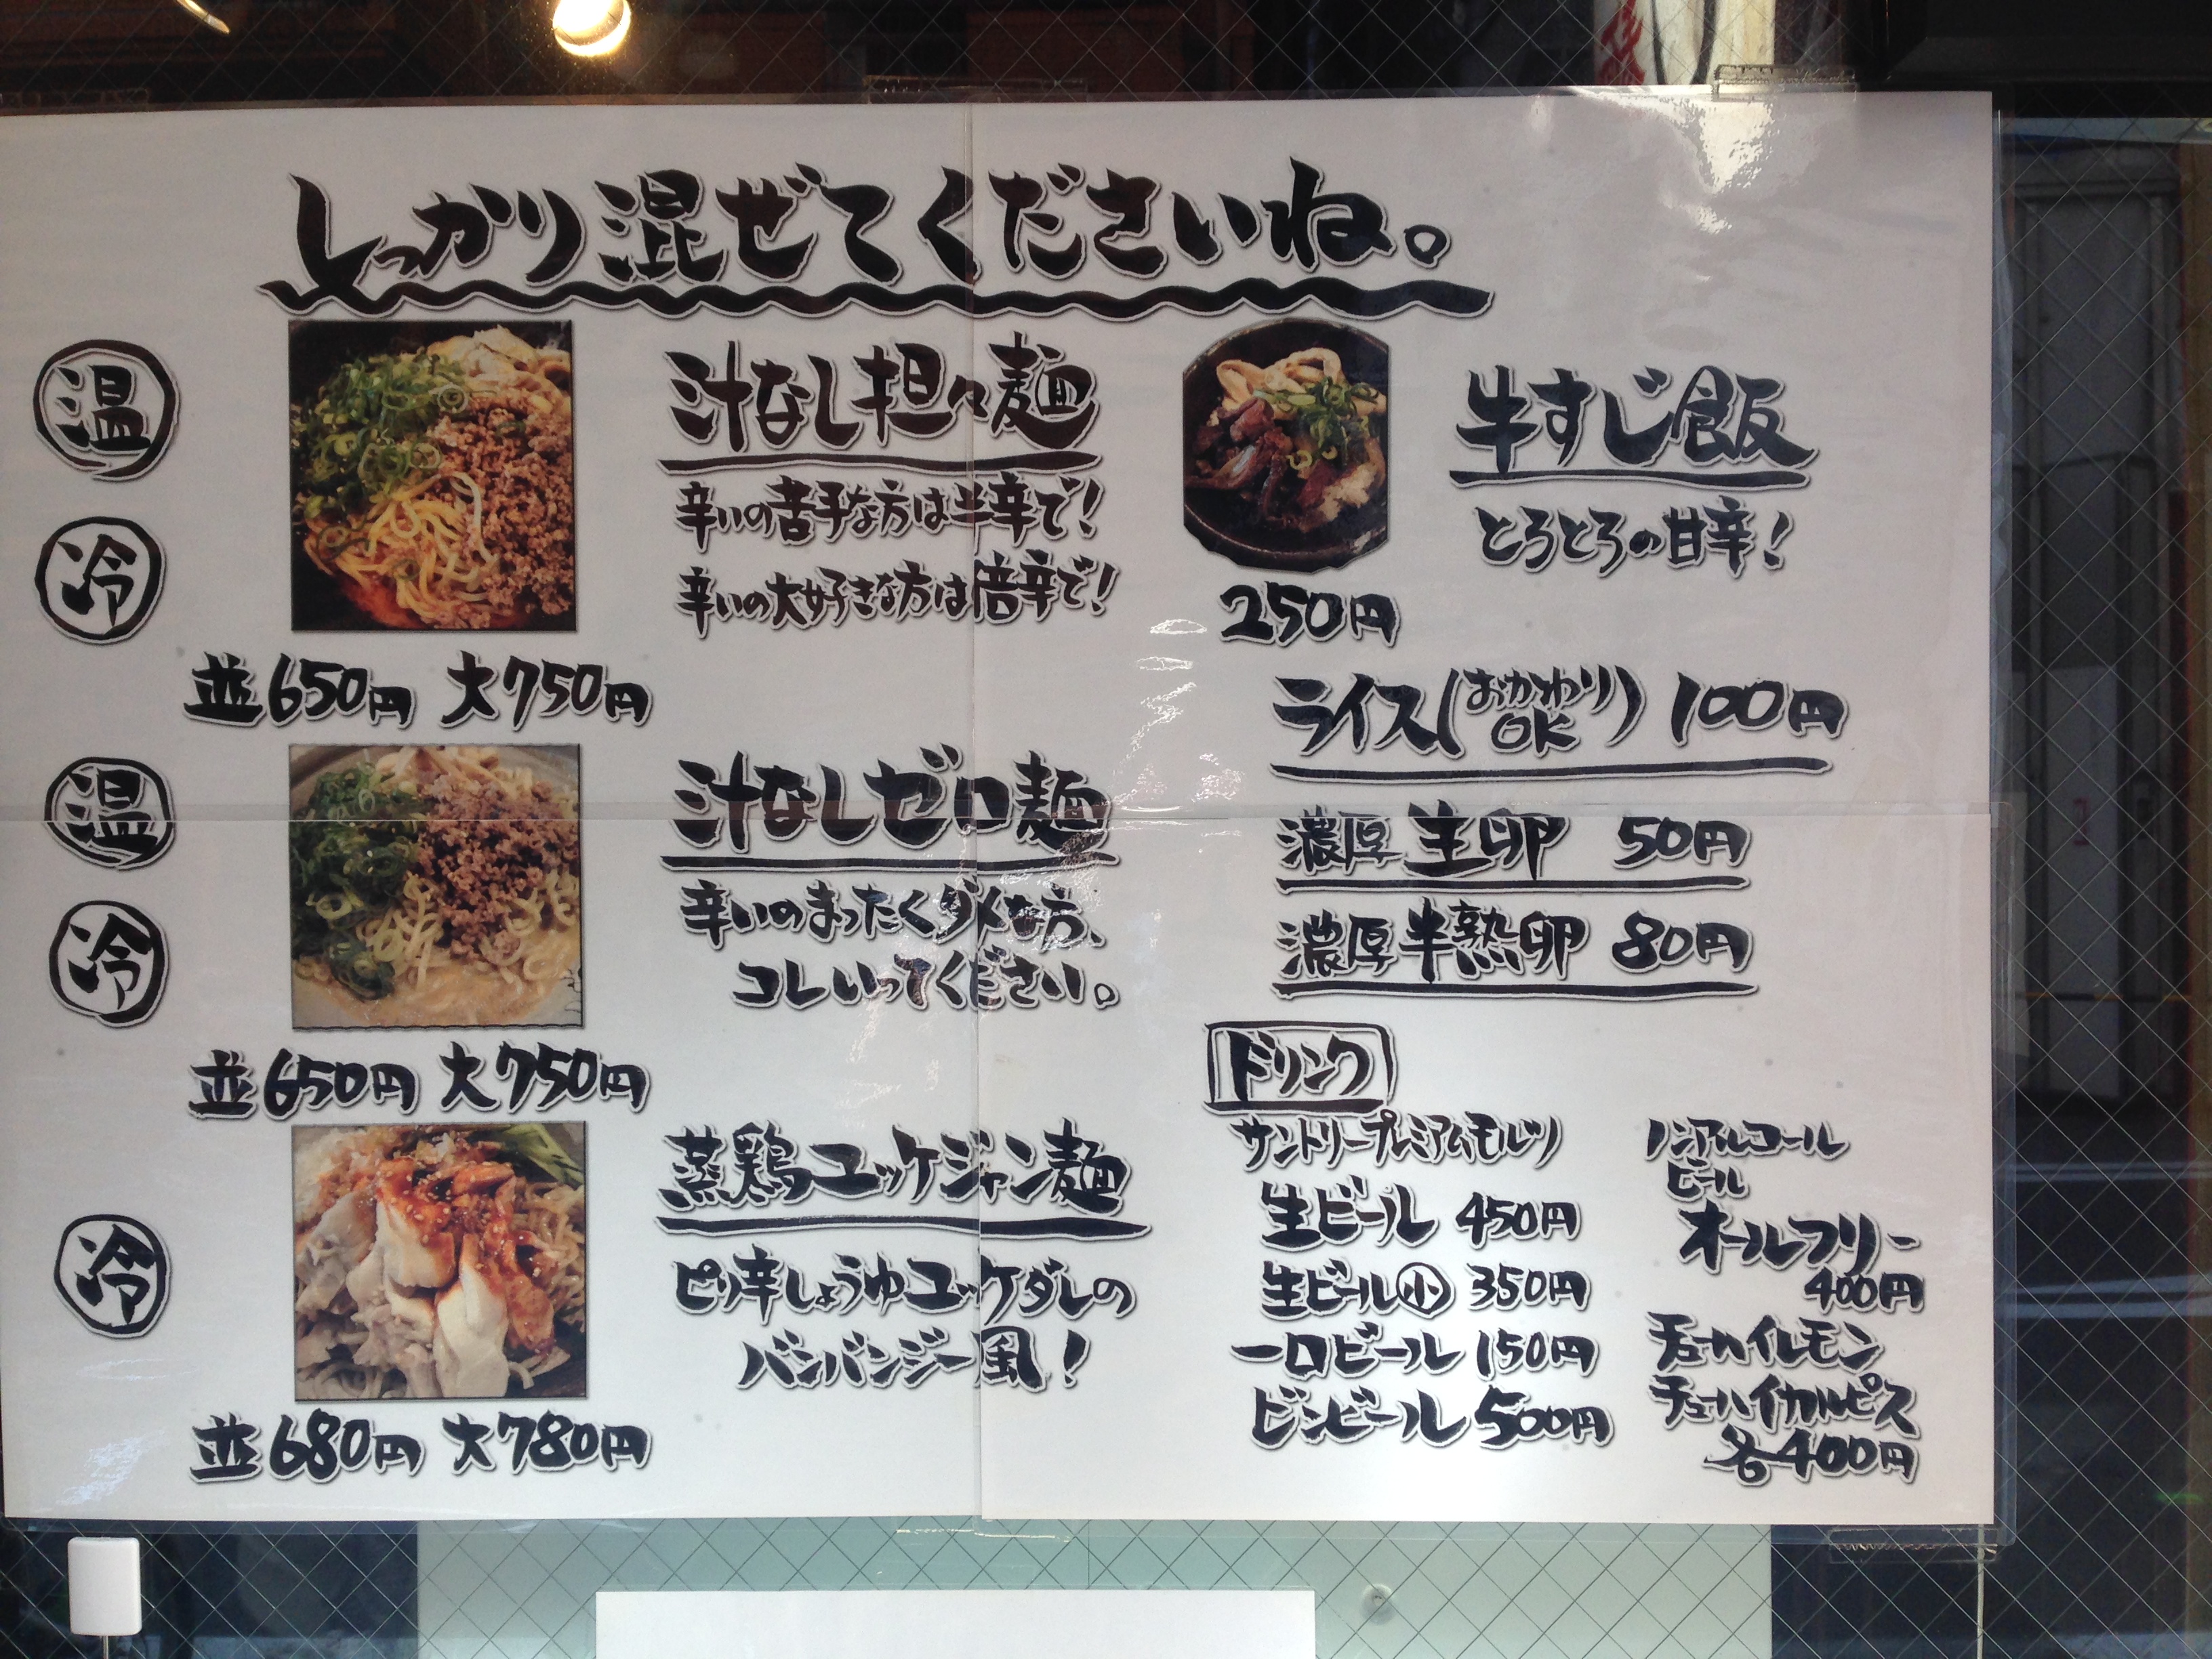 しっかり混ぜてくださいね。
温
冷
汁なし担々麺
辛いの苦手な方は半辛で!
辛いの大好きな方は倍辛で!
並650円 大750円
温
冷
汁なしゼロ麺
辛いのまったくダメな方、
コレいってください。
並650円 大750円
冷
蒸鶏ユッケジャン麺
ピリ辛しょうゆユッケダレの
バンバンジー風!
並680円 大780円
牛すじ飯
とろとろの甘辛!
250円
ライス(おかわりOK) 100円
濃厚生卵 50円
濃厚半熟卵 80円
ドリンク
サントリープレミアムモルツ
生ビール 450円
生ビール小 350円
一口ビール 150円
ビンビール 500円
ノンアルコール
ビール
オールフリー
400円
チューハイレモン
チューハイカルピス
各400円